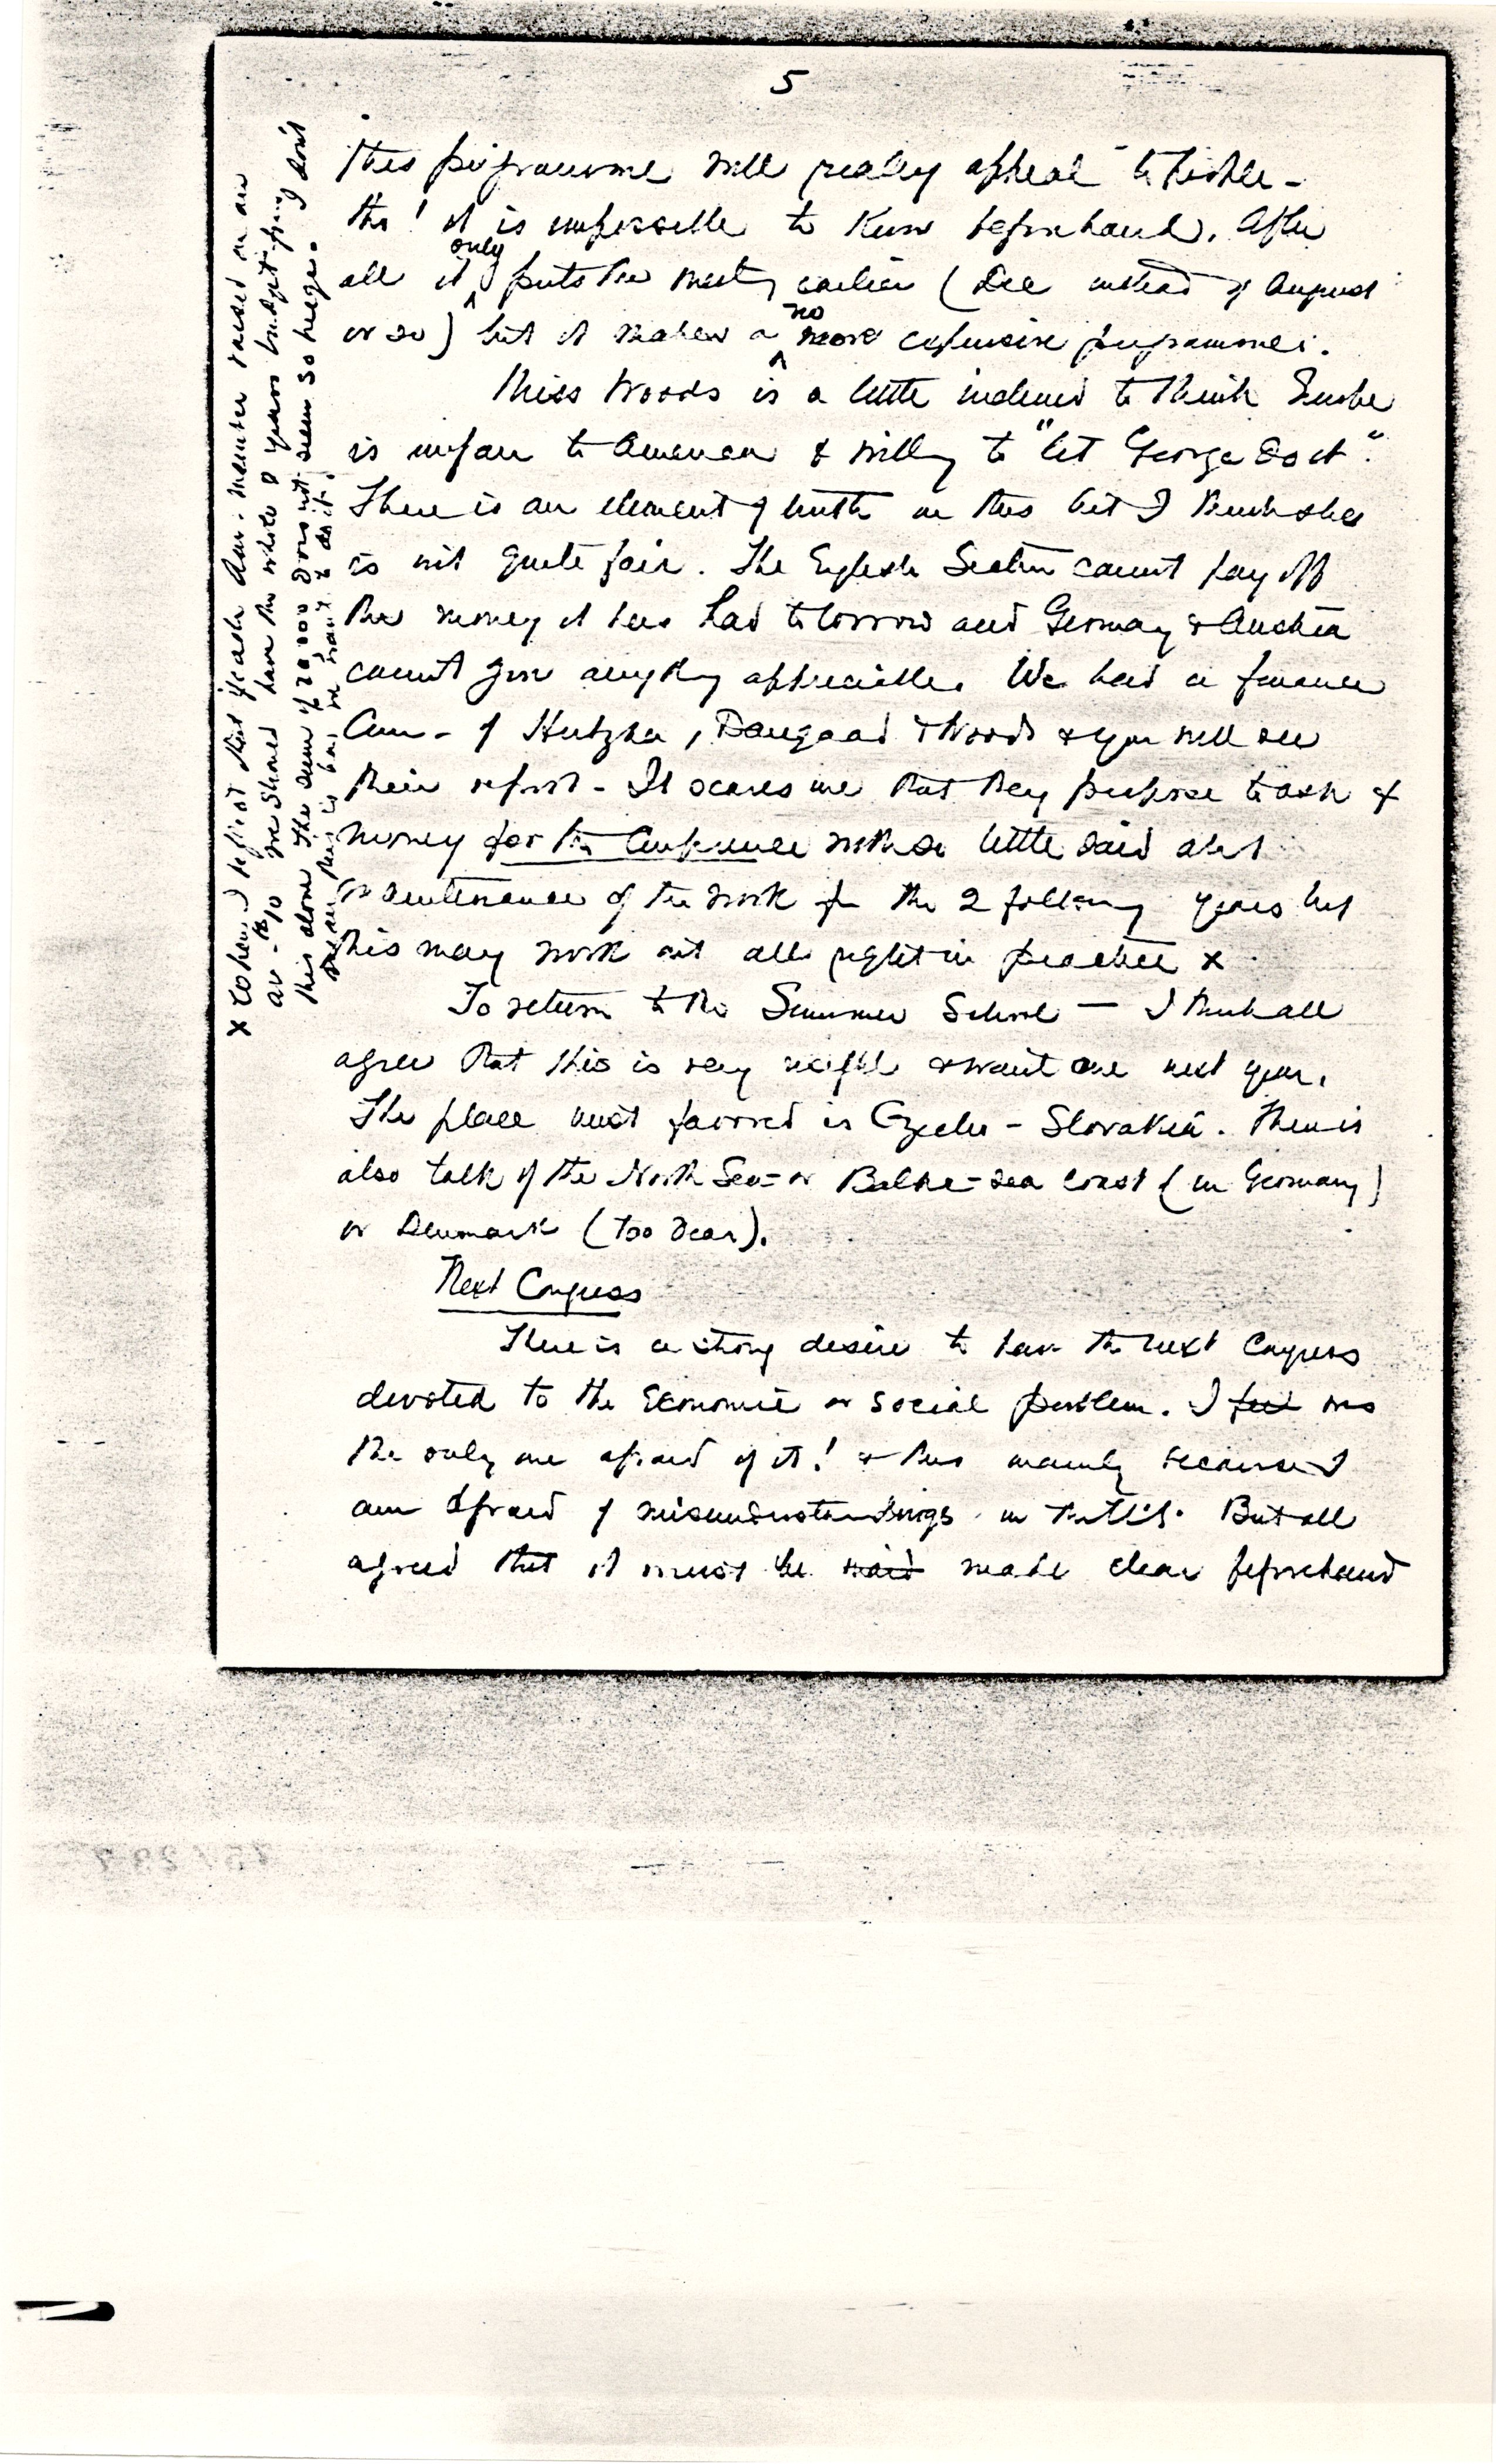 5
this programme will really appeal to people -
tho' it is impossible to know beforehand. After
all it only puts the meeting earlier (Dec instead of August
or so) but it makes a no more expensive programme.
Miss Woods is a little inclined to think Europe
is unfair to America & willing to "let George do it".
There is an element of truth in this but I think she
is not quite fair. The English Section cannot pay off
the money it has had to borrow and Germany & Austria
cannot give anything appreciable. We had a finance
Com- of , Daugaard & Woods & you will see
their report - It scares me that they propose to ask
money for the Conference with so little said abt
maintenance of the work for the 2 following years but
this may work out all right in practice x
To return to the Summer School — I think all
agree that this is very useful & want one next year.
The place most favored is Czecho-Slovakia. There is
also talk of the North Sea- or Baltic-sea coast (in Germany)
or Denmark (too dear).
Next Congress
There is a strong desire to have the next Congress
devoted to the economic or social problem. I feel was
the only one afraid of it! & this mainly because I
am afraid of misunderstandings in the U.S. But all
agreed that it must be said made clear beforehand
x When I reflect that if each Am. member raised on an
av - $10 we should have the whole 2 years budget from
this alone the sum of 20 000 does not seem so huge.
is . we want to do it!
don't